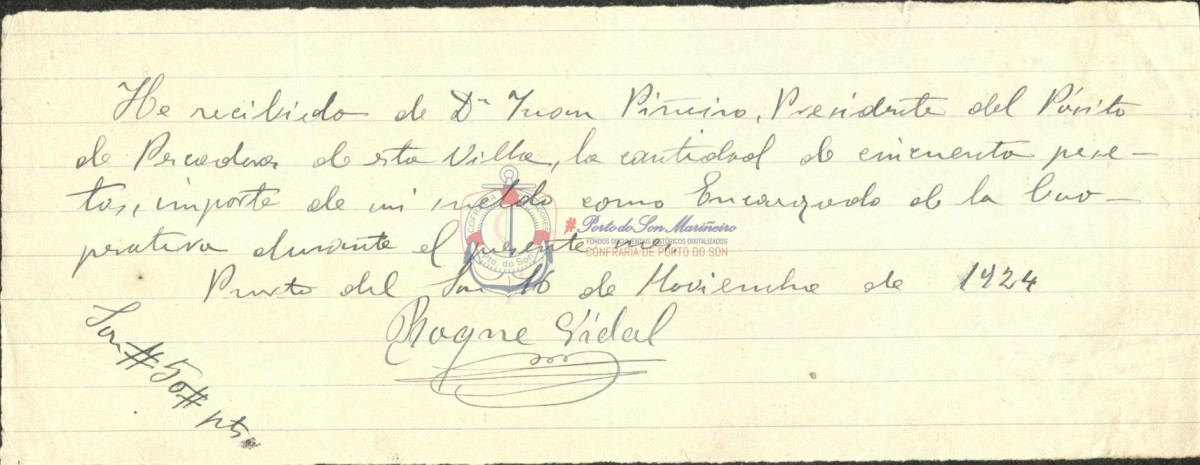 He recibido de Dn Juan Piñeiro, Presidente del Pósito
de Pescadores de esta Villa, la cantidad de cincuenta pese-
tas, importe de mi sueldo como Encargado de la Coo-
perativa durante el presente mes.
Puerto del Son 16 de Noviembre de 1924
Roque Vidal
Son #50# pts
#Porto do Son Mariñeiro
FONDOS DOCUMENTAIS HISTÓRICOS DIXITALIZADOS
CONFRARÍA DE PORTO DO SON
Pto. do Son